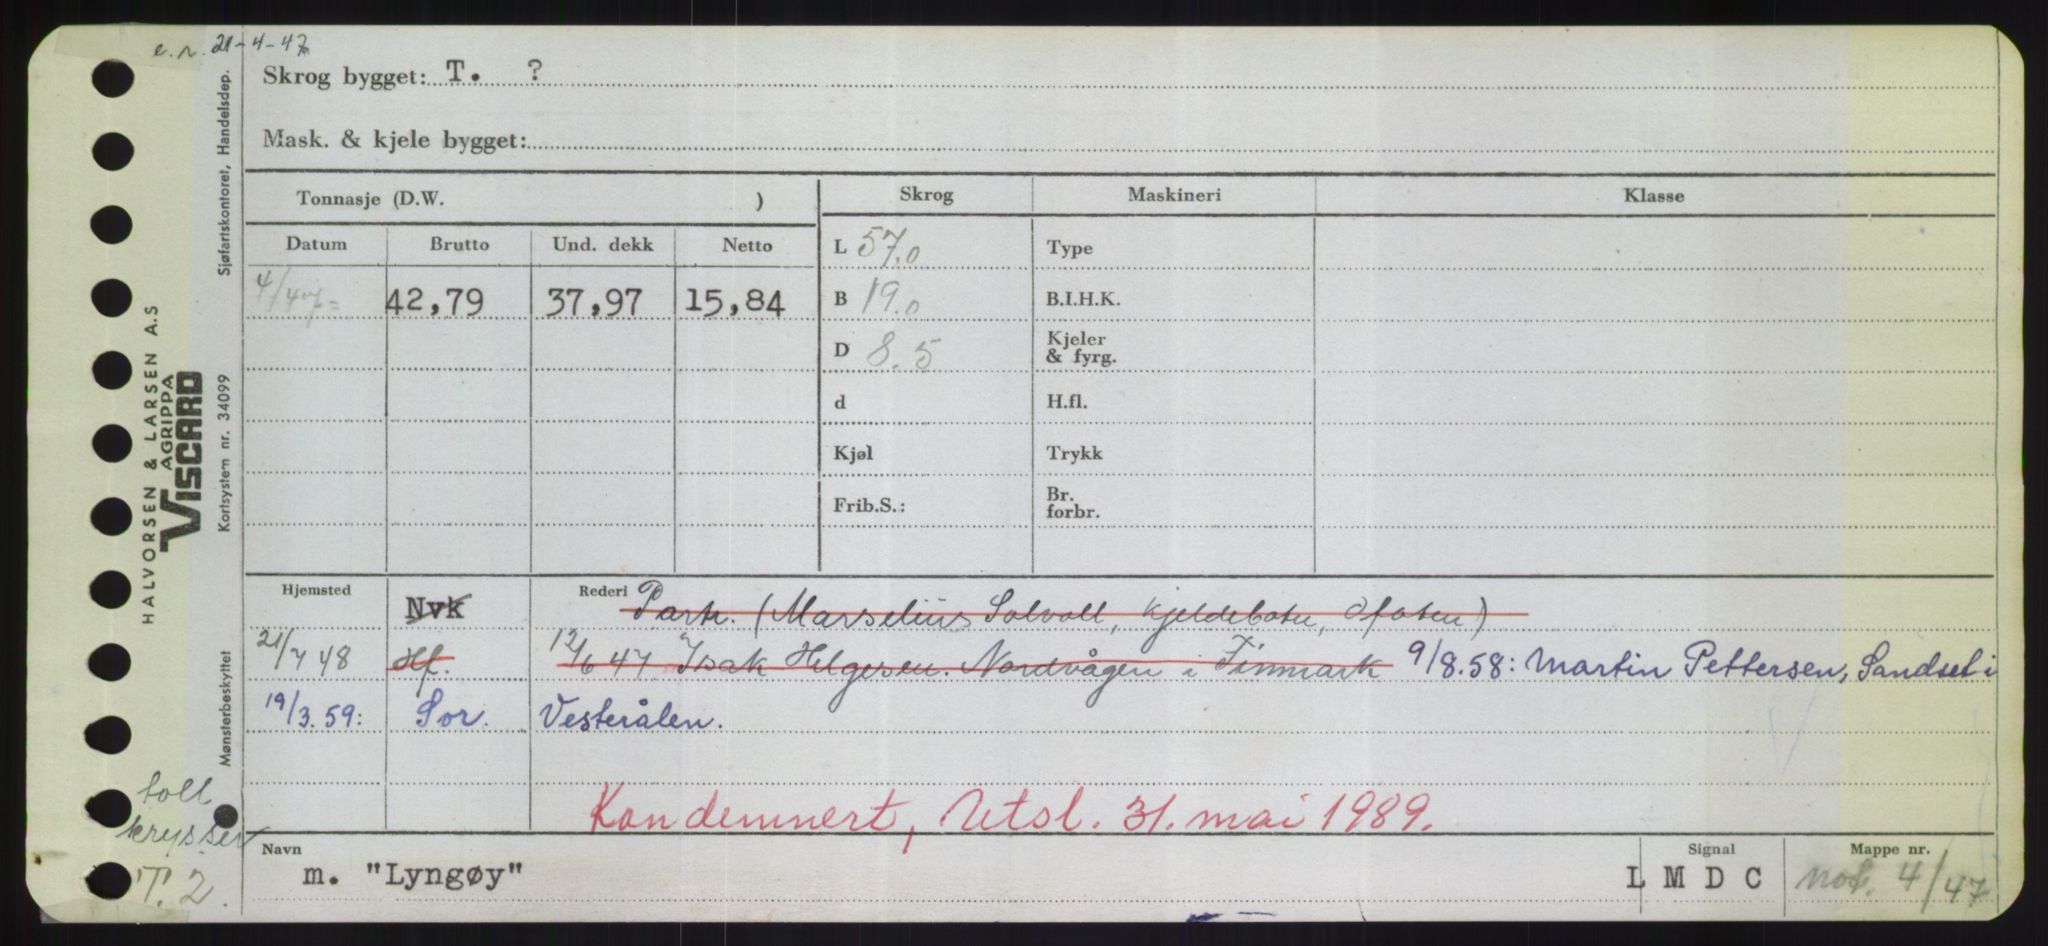 e.r. 21-4-47
Skrog bygget: T. ?
Mask. & kjele bygget:
Tonnasje (D.W. )
Skrog Maskineri Klasse
Datum Brutto Und. dekk Netto
L 57.0 Type
4/47= 42,79 37,97 15,84
B 19.0 B.I.H.K.
D 8.5 Kjeler & fyrg.
d H.fl.
Kjøl Trykk
Frib.S.: Br. forbr.
Hjemsted Nvk Rederi Partr. (Marselius Solvoll, Kjeldebotn, Ofoten)
21/7 48 Hf. 12/6 47 Isak Helgesen. Nordvågen i Finmark 9/8.58: Martin Pettersen, Sandset i
19/3.59: Sor. Vesterålen.
Kondemnert, Utsl. 31. mai 1989.
Navn m. "Lyngøy" Signal L M D C Mappe nr. nof. 4/47
toll
krysser
T. 2.
HALVORSEN & LARSEN A.S
AGRIPPA
VISCARD
Mønsterbeskyttet Kortsystem nr. 34099 Sjøfartskontoret, Handelsdep.